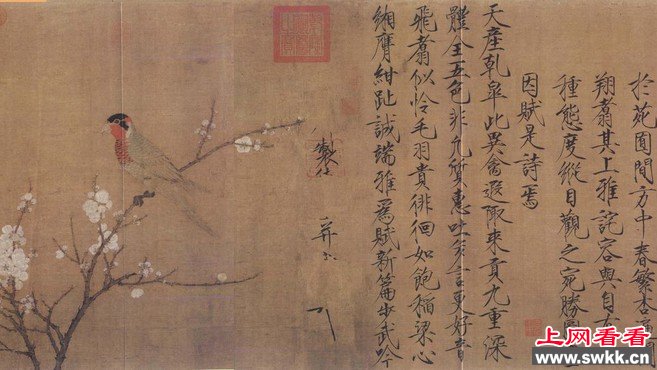 於苑囿間方中春繁杏遍開
翔翥其上雅詫容與自有
種態度縱目觀之宛勝圖
因賦是詩焉
天產乾皋此異禽遐陬來貢九重深
體全五色非凡質惠吐多言更好音
飛翥似憐毛羽貴徘徊如飽稻粱心
緗膺紺趾誠端雅為賦新篇步武吟
製
并
上网看看
www.swkk.cn